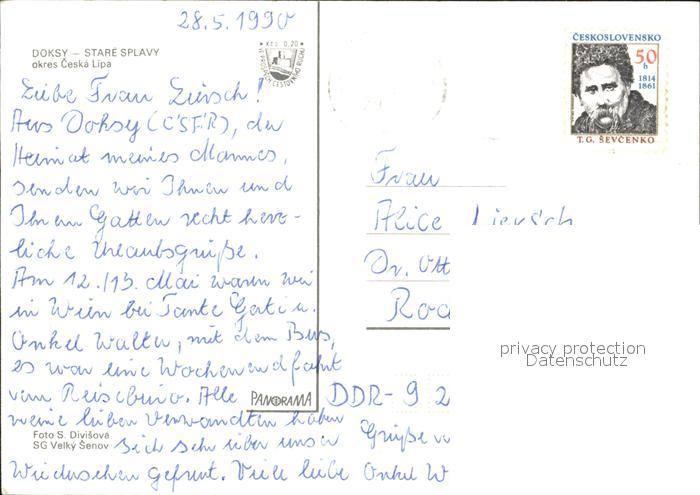 28.5.1990
DOKSY — STARÉ SPLAVY
okres Česká Lípa
Kčs 0,20
VE PROSPĚCH CESTOVNÍHO RUCHU
ČESKOSLOVENSKO
50 h
1814
1861
T.G. ŠEVČENKO
Liebe Frau Liersch!
Aus Doksy (ČSFR), der
Heimat meines Mannes,
senden wir Ihnen und
Ihrem Gatten recht herz-
liche Urlaubsgrüße.
Am 12./13. Mai waren wir
in Wien bei Tante Gerti u.
Onkel Walter, mit dem Bus,
es war eine Wochenendfahrt
vom Reisebüro. Alle
meine lieben Verwandten haben
sich sehr über unser
Wiedersehen gefreut. Viele liebe
Grüße v
Onkel W
Frau
Alice Liersch
Dr. Ott
Rod
DDR - 9 2
PANORAMA
Foto S. Divišová
SG Velký Šenov
privacy protection
Datenschutz